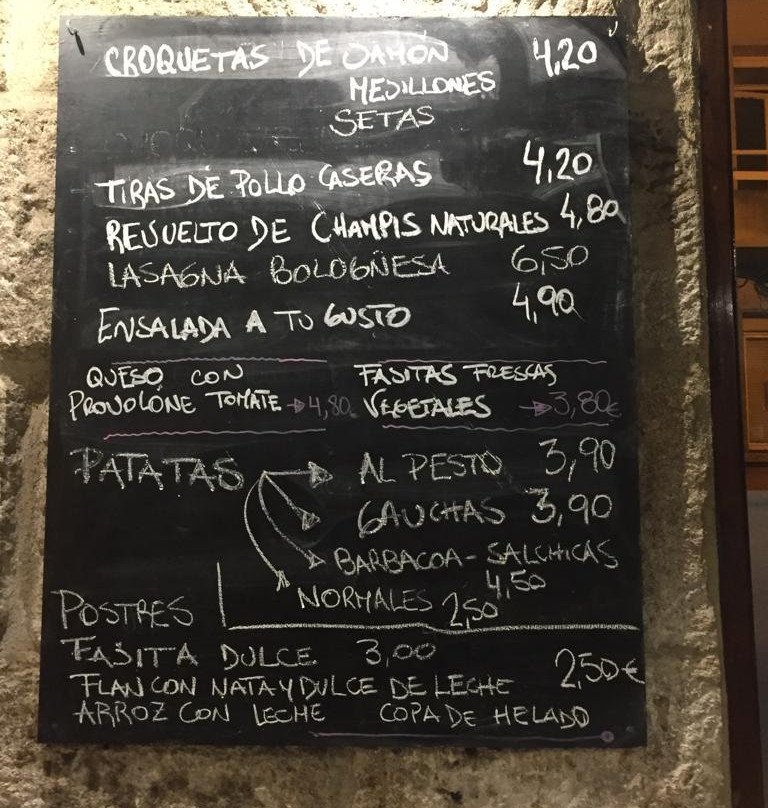 CROQUETAS DE JAMÓN 4,20
MEJILLONES
SETAS
TIRAS DE POLLO CASERAS 4,20
REVUELTO DE CHAMPIS NATURALES 4,80
LASAGNA BOLOGÑESA 6,50
ENSALADA A TU GUSTO 4,90
QUESO CON
PROVOLONE TOMATE → 4,80
FAJITAS FRESCAS
VEGETALES → 3,80€
PATATAS → AL PESTO 3,90
GAUCHAS 3,90
BARBACOA - SALCHICAS
4,50
NORMALES 2,50
POSTRES
FAJITA DULCE 3,00
FLAN CON NATA Y DULCE DE LECHE 2,50€
ARROZ CON LECHE COPA DE HELADO